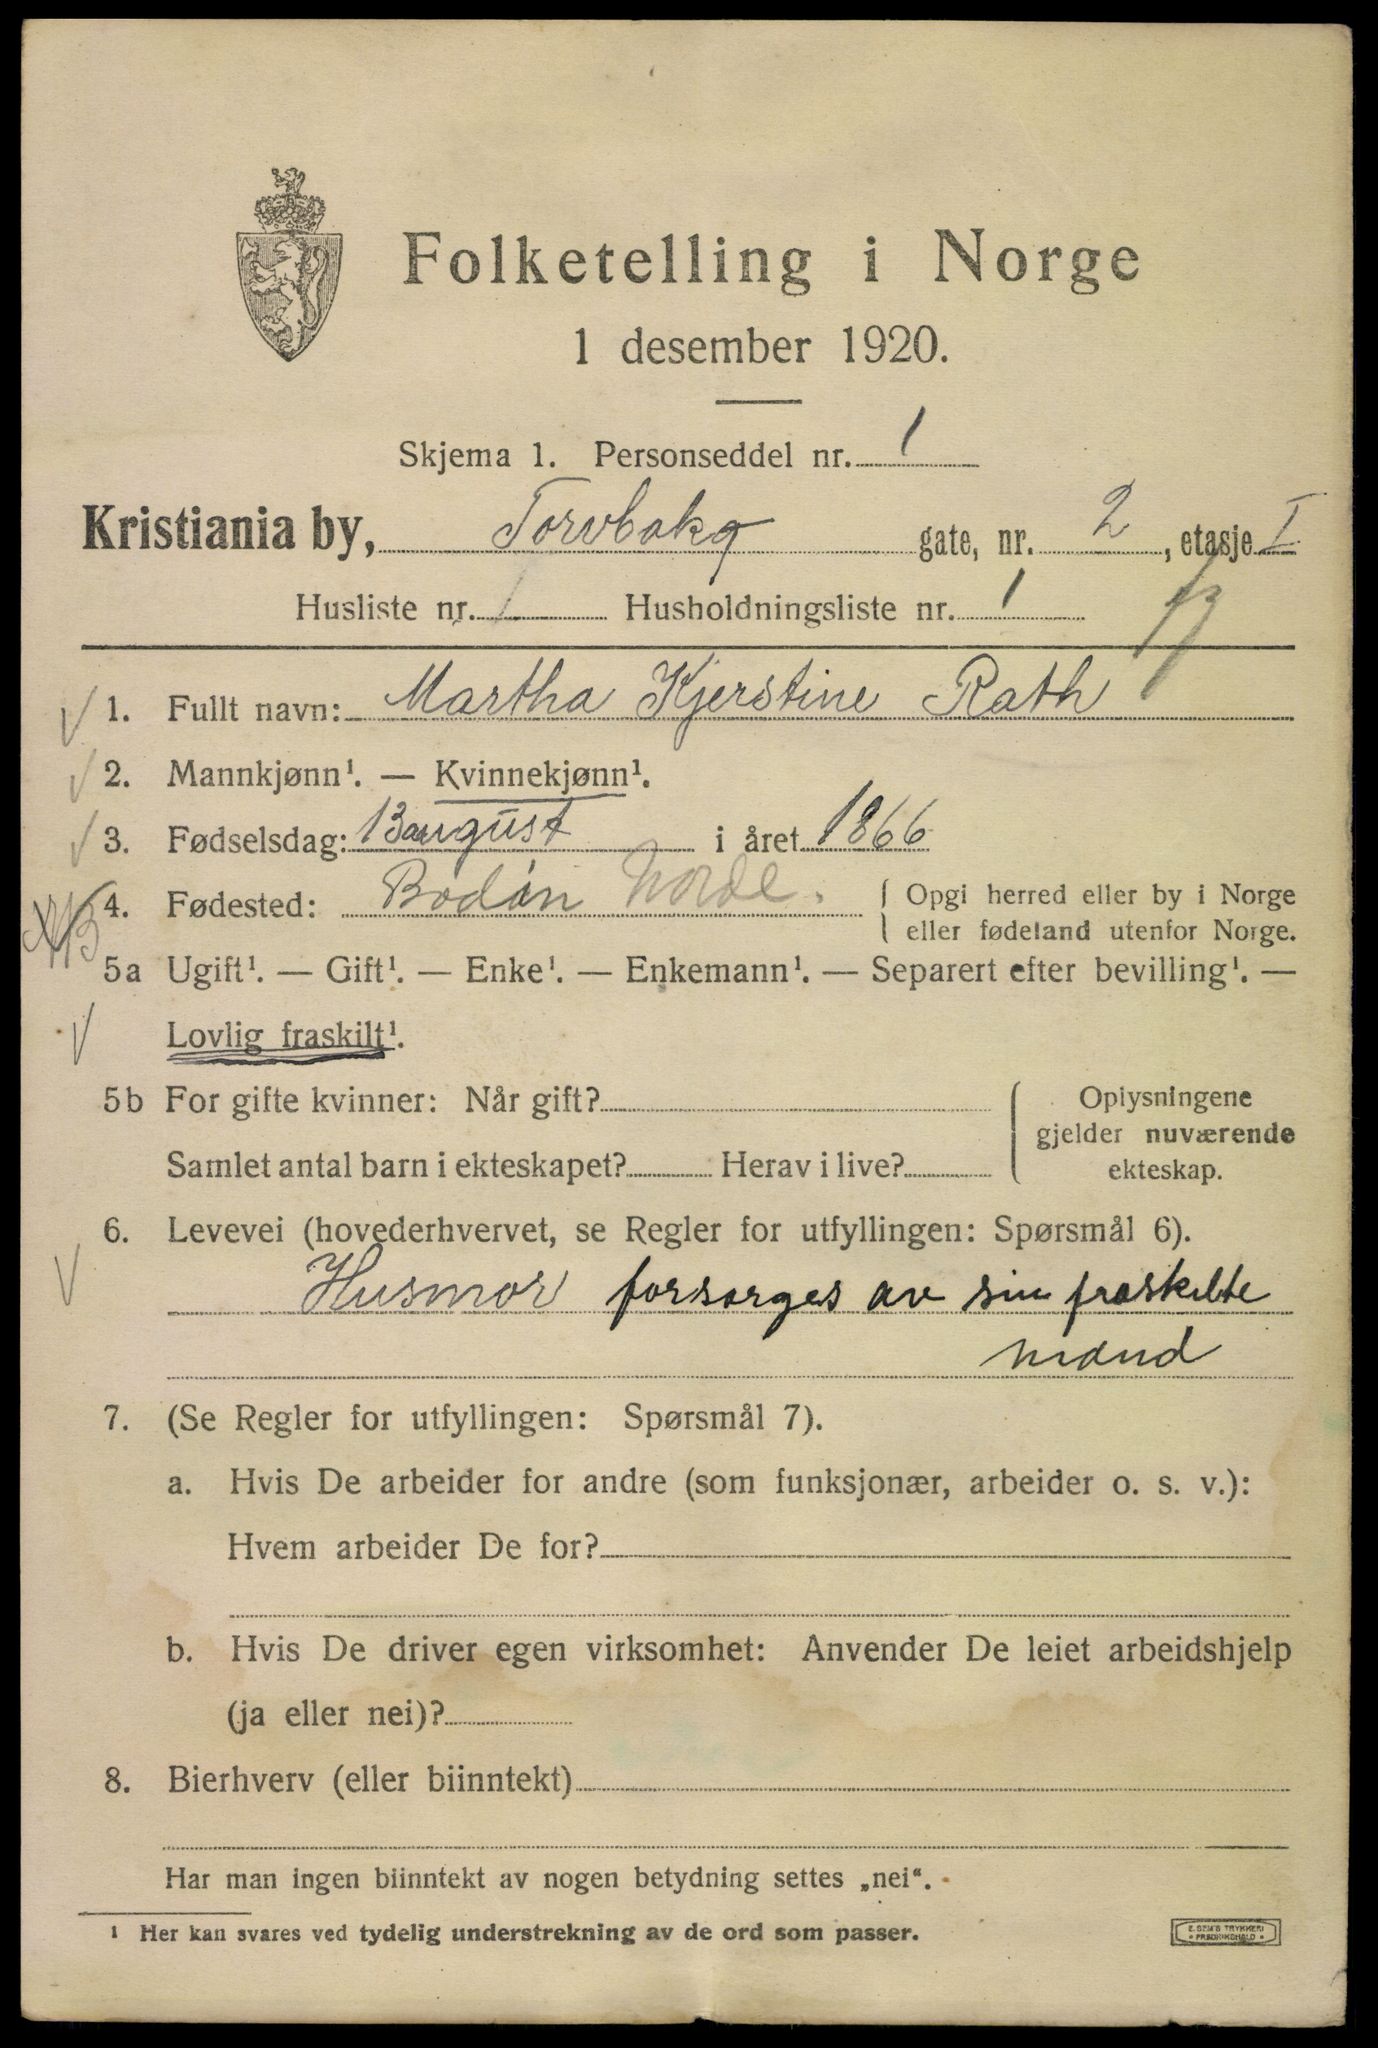 Folketelling i Norge
1 desember 1920.
Skjema 1. Personseddel nr. 1
Kristiania by, Torvbakg gate, nr. 2, etasje I
Husliste nr. 1 Husholdningsliste nr. 1
1. Fullt navn: Martha Kjerstine Rath
2. Mannkjønn¹. — Kvinnekjønn¹.
3. Fødselsdag: 13 august i året 1866
4. Fødested: Bodin Nordl. { Opgi herred eller by i Norge
eller fødeland utenfor Norge.
5a Ugift¹. — Gift¹. — Enke¹. — Enkemann¹. — Separert efter bevilling¹. —
Lovlig fraskilt¹.
5b For gifte kvinner: Når gift? { Oplysningene
gjelder nuværende
Samlet antal barn i ekteskapet? Herav i live? ekteskap.
6. Levevei (hovederhvervet, se Regler for utfyllingen: Spørsmål 6).
Husmor forsørges av sin fraskilte
mand
7. (Se Regler for utfyllingen: Spørsmål 7).
a. Hvis De arbeider for andre (som funksjonær, arbeider o. s. v.):
Hvem arbeider De for?
b. Hvis De driver egen virksomhet: Anvender De leiet arbeidshjelp
(ja eller nei)?
8. Bierhverv (eller biinntekt)
Har man ingen biinntekt av nogen betydning settes „nei“.
¹ Her kan svares ved tydelig understrekning av de ord som passer.
E. SEM'S TRYKKERI
FREDRIKSHALD